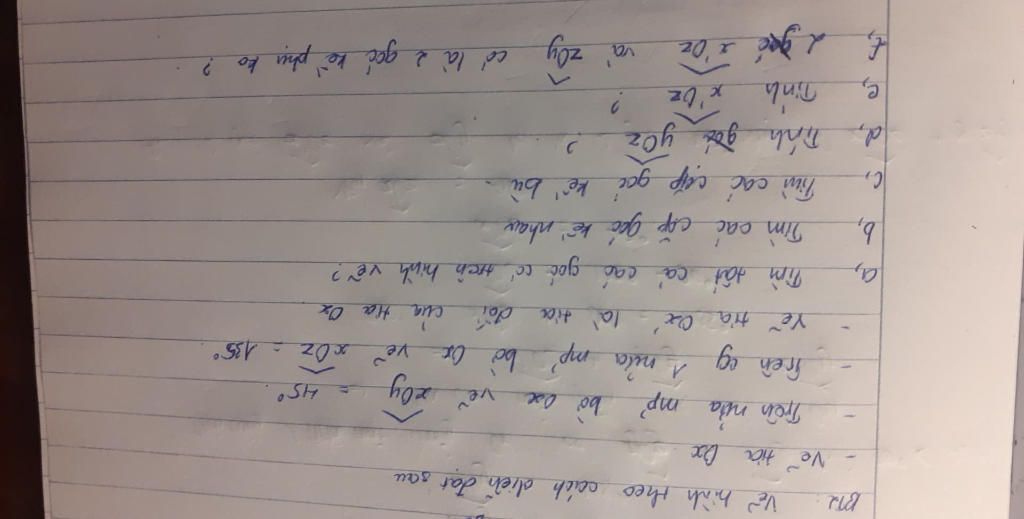 BT2: Vẽ hình theo cách diễn đạt sau
- Vẽ tia Ox
- Trên nửa mp bờ Ox vẽ xOy = 45°.
- Trên cg 1 nửa mp bờ Ox vẽ xOz = 135°.
- Vẽ tia Ox' là tia đối của tia Ox
a, Tìm tất cả các góc có trên hình vẽ?
b, Tìm các cặp góc kề nhau
c, Tìm các cặp góc kề bù
d, Tính góc yOz ?
e, Tính x'Oz ?
f, 2 góc x'Oz và zOy có là 2 góc kề phụ ko ?